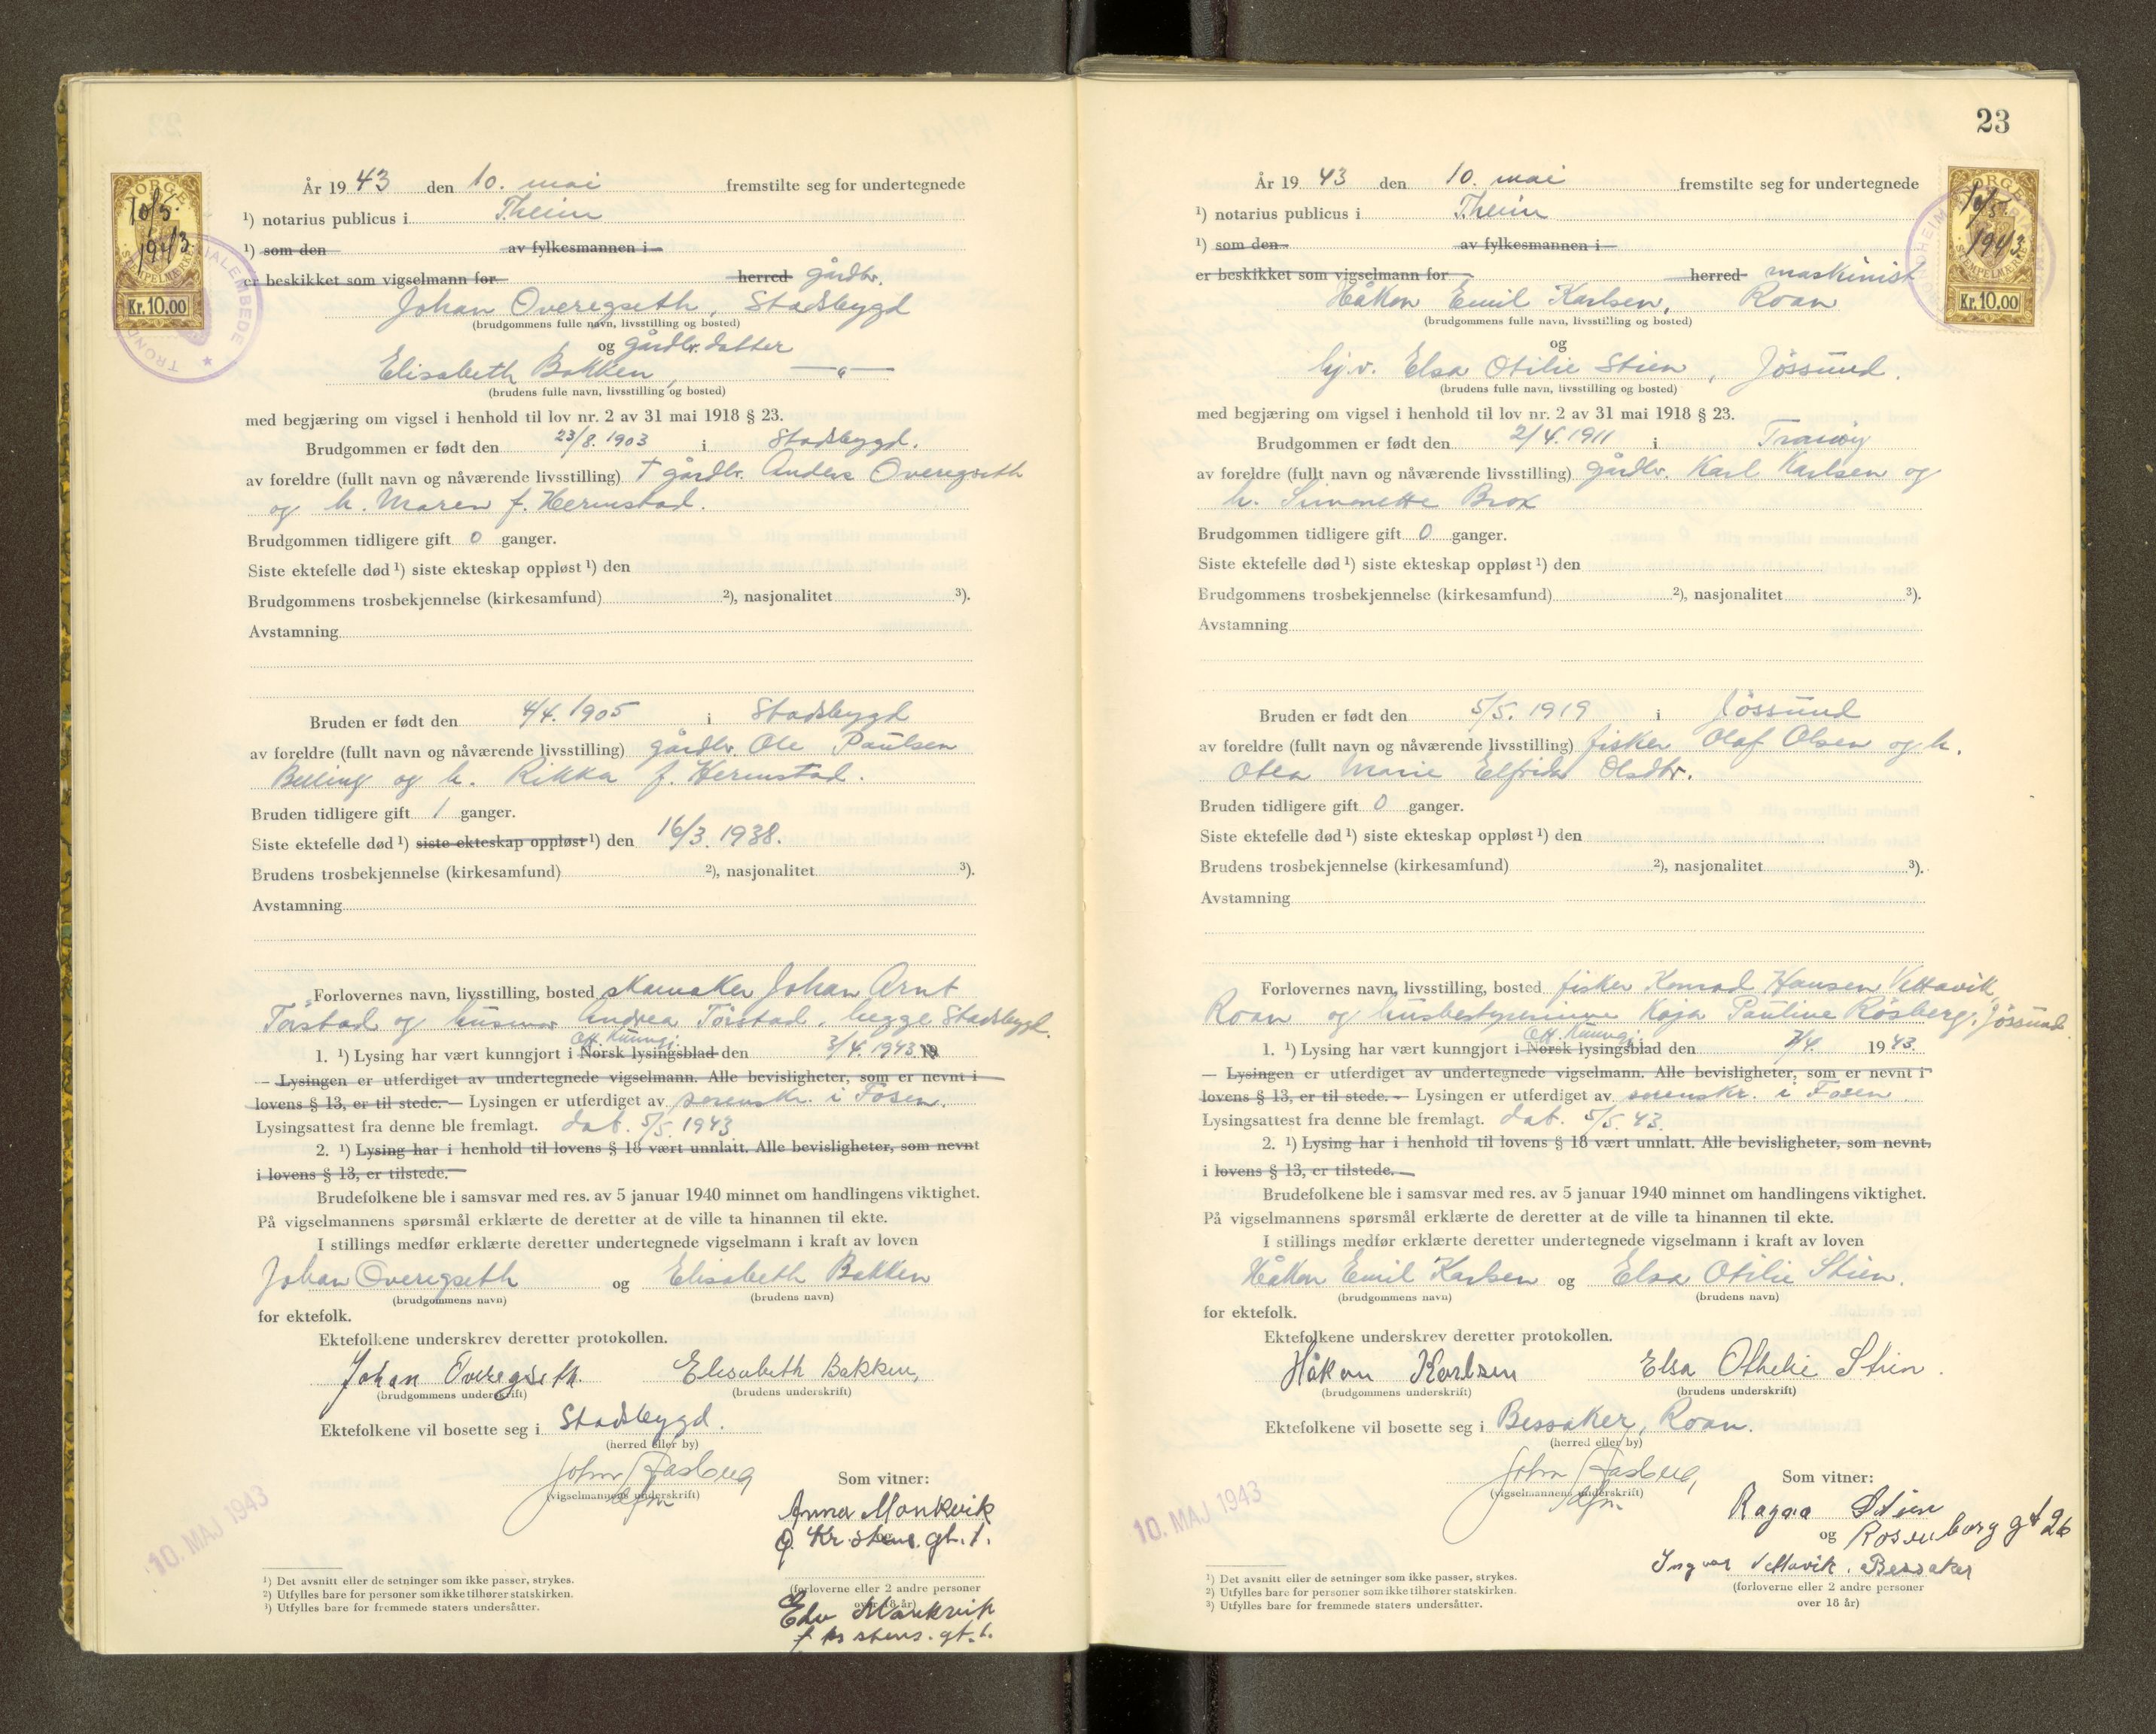 År 19 43 den 10. mai fremstilte seg for undertegnede
¹) notarius publicus i Theim
¹) som den av fylkesmannen i
er beskikket som vigselmann for herred gårdbr.
Johan Overegseth, Stadsbygd
(brudgommens fulle navn, livsstilling og bosted)
og gårdbr. datter
Elisabeth Bakken, —"—
(brudens fulle navn, livsstilling og bosted)
med begjæring om vigsel i henhold til lov nr. 2 av 31 mai 1918 § 23.
Brudgommen er født den 23/8. 1903 i Stadsbygd.
av foreldre (fullt navn og nåværende livsstilling) † gårdbr. Anders Overegseth
og h. Maren f. Hermstad.
Brudgommen tidligere gift 0 ganger.
Siste ektefelle død ¹) siste ekteskap oppløst ¹) den
Brudgommens trosbekjennelse (kirkesamfund) ²), nasjonalitet ³).
Avstamning
Bruden er født den 4/4. 1905 i Stadsbygd
av foreldre (fullt navn og nåværende livsstilling) gårdbr. Ole Paulsen
og h. Rikka f. Hermstad.
Bruden tidligere gift 1 ganger.
Siste ektefelle død ¹) siste ekteskap oppløst ¹) den 16/3. 1938.
Brudens trosbekjennelse (kirkesamfund) ²), nasjonalitet ³).
Avstamning
Forlovernes navn, livsstilling, bosted skomaker Johan Arnt
Tørstad og husmor Andrea Tørstad, begge Stadsbygd.
Off. Kunngj.
1. ¹) Lysing har vært kunngjort i Norsk lysingsblad den 3/4. 1943 19
— Lysingen er utferdiget av undertegnede vigselmann. Alle bevisligheter, som er nevnt i
lovens § 13, er til stede. — Lysingen er utferdiget av sorenskr. i Fosen.
Lysingsattest fra denne ble fremlagt. dat. 5/5. 1943
2. ¹) Lysing har i henhold til lovens § 18 vært unnlatt. Alle bevisligheter, som nevnt
i lovens § 13, er tilstede.
Brudefolkene ble i samsvar med res. av 5 januar 1940 minnet om handlingens viktighet.
På vigselmannens spørsmål erklærte de deretter at de ville ta hinannen til ekte.
I stillings medfør erklærte deretter undertegnede vigselmann i kraft av loven
Johan Overegseth og Elisabeth Bakken
(brudgommens navn) (brudens navn)
for ektefolk.
Ektefolkene underskrev deretter protokollen.
Johan Overegseth. Elisabeth Bakken,
(brudgommens underskrift) (brudens underskrift)
Ektefolkene vil bosette seg i Stadsbygd.
(herred eller by)
John Aasberg
(vigselmannens underskrift)
Som vitner:
Anna Mankvik
Kr. stens. gt. 1.
(forloverne eller 2 andre personer
over 18 år)
Edv Mankvik
stens. gt. 1.
10. MAJ 1943
¹) Det avsnitt eller de setninger som ikke passer, strykes.
²) Utfylles bare for personer som ikke tilhører statskirken.
³) Utfylles bare for fremmede staters undersåtter.
NORGE
10/5. 1943.
STEMPELMERKE
Kr. 10,00
23
År 19 43 den 10. mai fremstilte seg for undertegnede
¹) notarius publicus i Theim
¹) som den av fylkesmannen i
er beskikket som vigselmann for herred maskinist
Håkon Emil Karlsen, Roan
(brudgommens fulle navn, livsstilling og bosted)
og
hj.v. Elsa Otilie Stien, Jössund.
(brudens fulle navn, livsstilling og bosted)
med begjæring om vigsel i henhold til lov nr. 2 av 31 mai 1918 § 23.
Brudgommen er født den 2/4. 1911 i Tranöy
av foreldre (fullt navn og nåværende livsstilling) gårdbr. Karl Karlsen og
h. Simonette Brox
Brudgommen tidligere gift 0 ganger.
Siste ektefelle død ¹) siste ekteskap oppløst ¹) den
Brudgommens trosbekjennelse (kirkesamfund) ²), nasjonalitet ³).
Avstamning
Bruden er født den 5/5. 1919 i Jössund
av foreldre (fullt navn og nåværende livsstilling) fisker Olaf Olsen og h.
Otea Marie Elfrida Olsdtr.
Bruden tidligere gift 0 ganger.
Siste ektefelle død ¹) siste ekteskap oppløst ¹) den
Brudens trosbekjennelse (kirkesamfund) ²), nasjonalitet ³).
Avstamning
Forlovernes navn, livsstilling, bosted fisker Konrad Hansen Vettavik,
Roan og husbestyrerinne Kaja Pauline Rösberg, Jössund
Off. Kunngj.
1. ¹) Lysing har vært kunngjort i Norsk lysingsblad den 7/4. 19 43.
— Lysingen er utferdiget av undertegnede vigselmann. Alle bevisligheter, som er nevnt i
lovens § 13, er til stede. — Lysingen er utferdiget av sorenskr. i Fosen.
Lysingsattest fra denne ble fremlagt. dat. 5/5. 43.
2. ¹) Lysing har i henhold til lovens § 18 vært unnlatt. Alle bevisligheter, som nevnt.
i lovens § 13, er tilstede.
Brudefolkene ble i samsvar med res. av 5 januar 1940 minnet om handlingens viktighet.
På vigselmannens spørsmål erklærte de deretter at de ville ta hinannen til ekte.
I stillings medfør erklærte deretter undertegnede vigselmann i kraft av loven
Håkon Emil Karlsen og Elsa Otilie Stien.
(brudgommens navn) (brudens navn)
for ektefolk.
Ektefolkene underskrev deretter protokollen.
Håkon Karlsen Elsa Othelie Stien.
(brudgommens underskrift) (brudens underskrift)
Ektefolkene vil bosette seg i Bessaker, Roan.
(herred eller by)
John Aasberg
(vigselmannens underskrift)
Som vitner:
Ragna Stien
og Rosenborg gt 26
Ingvar Vettavik. Bessaker
(forloverne eller 2 andre personer
over 18 år)
10. MAJ 1943
¹) Det avsnitt eller de setninger som ikke passer, strykes.
²) Utfylles bare for personer som ikke tilhører statskirken.
³) Utfylles bare for fremmede staters undersåtter.
NORGE
10/5. 1943.
STEMPELMERKE
Kr. 10,00